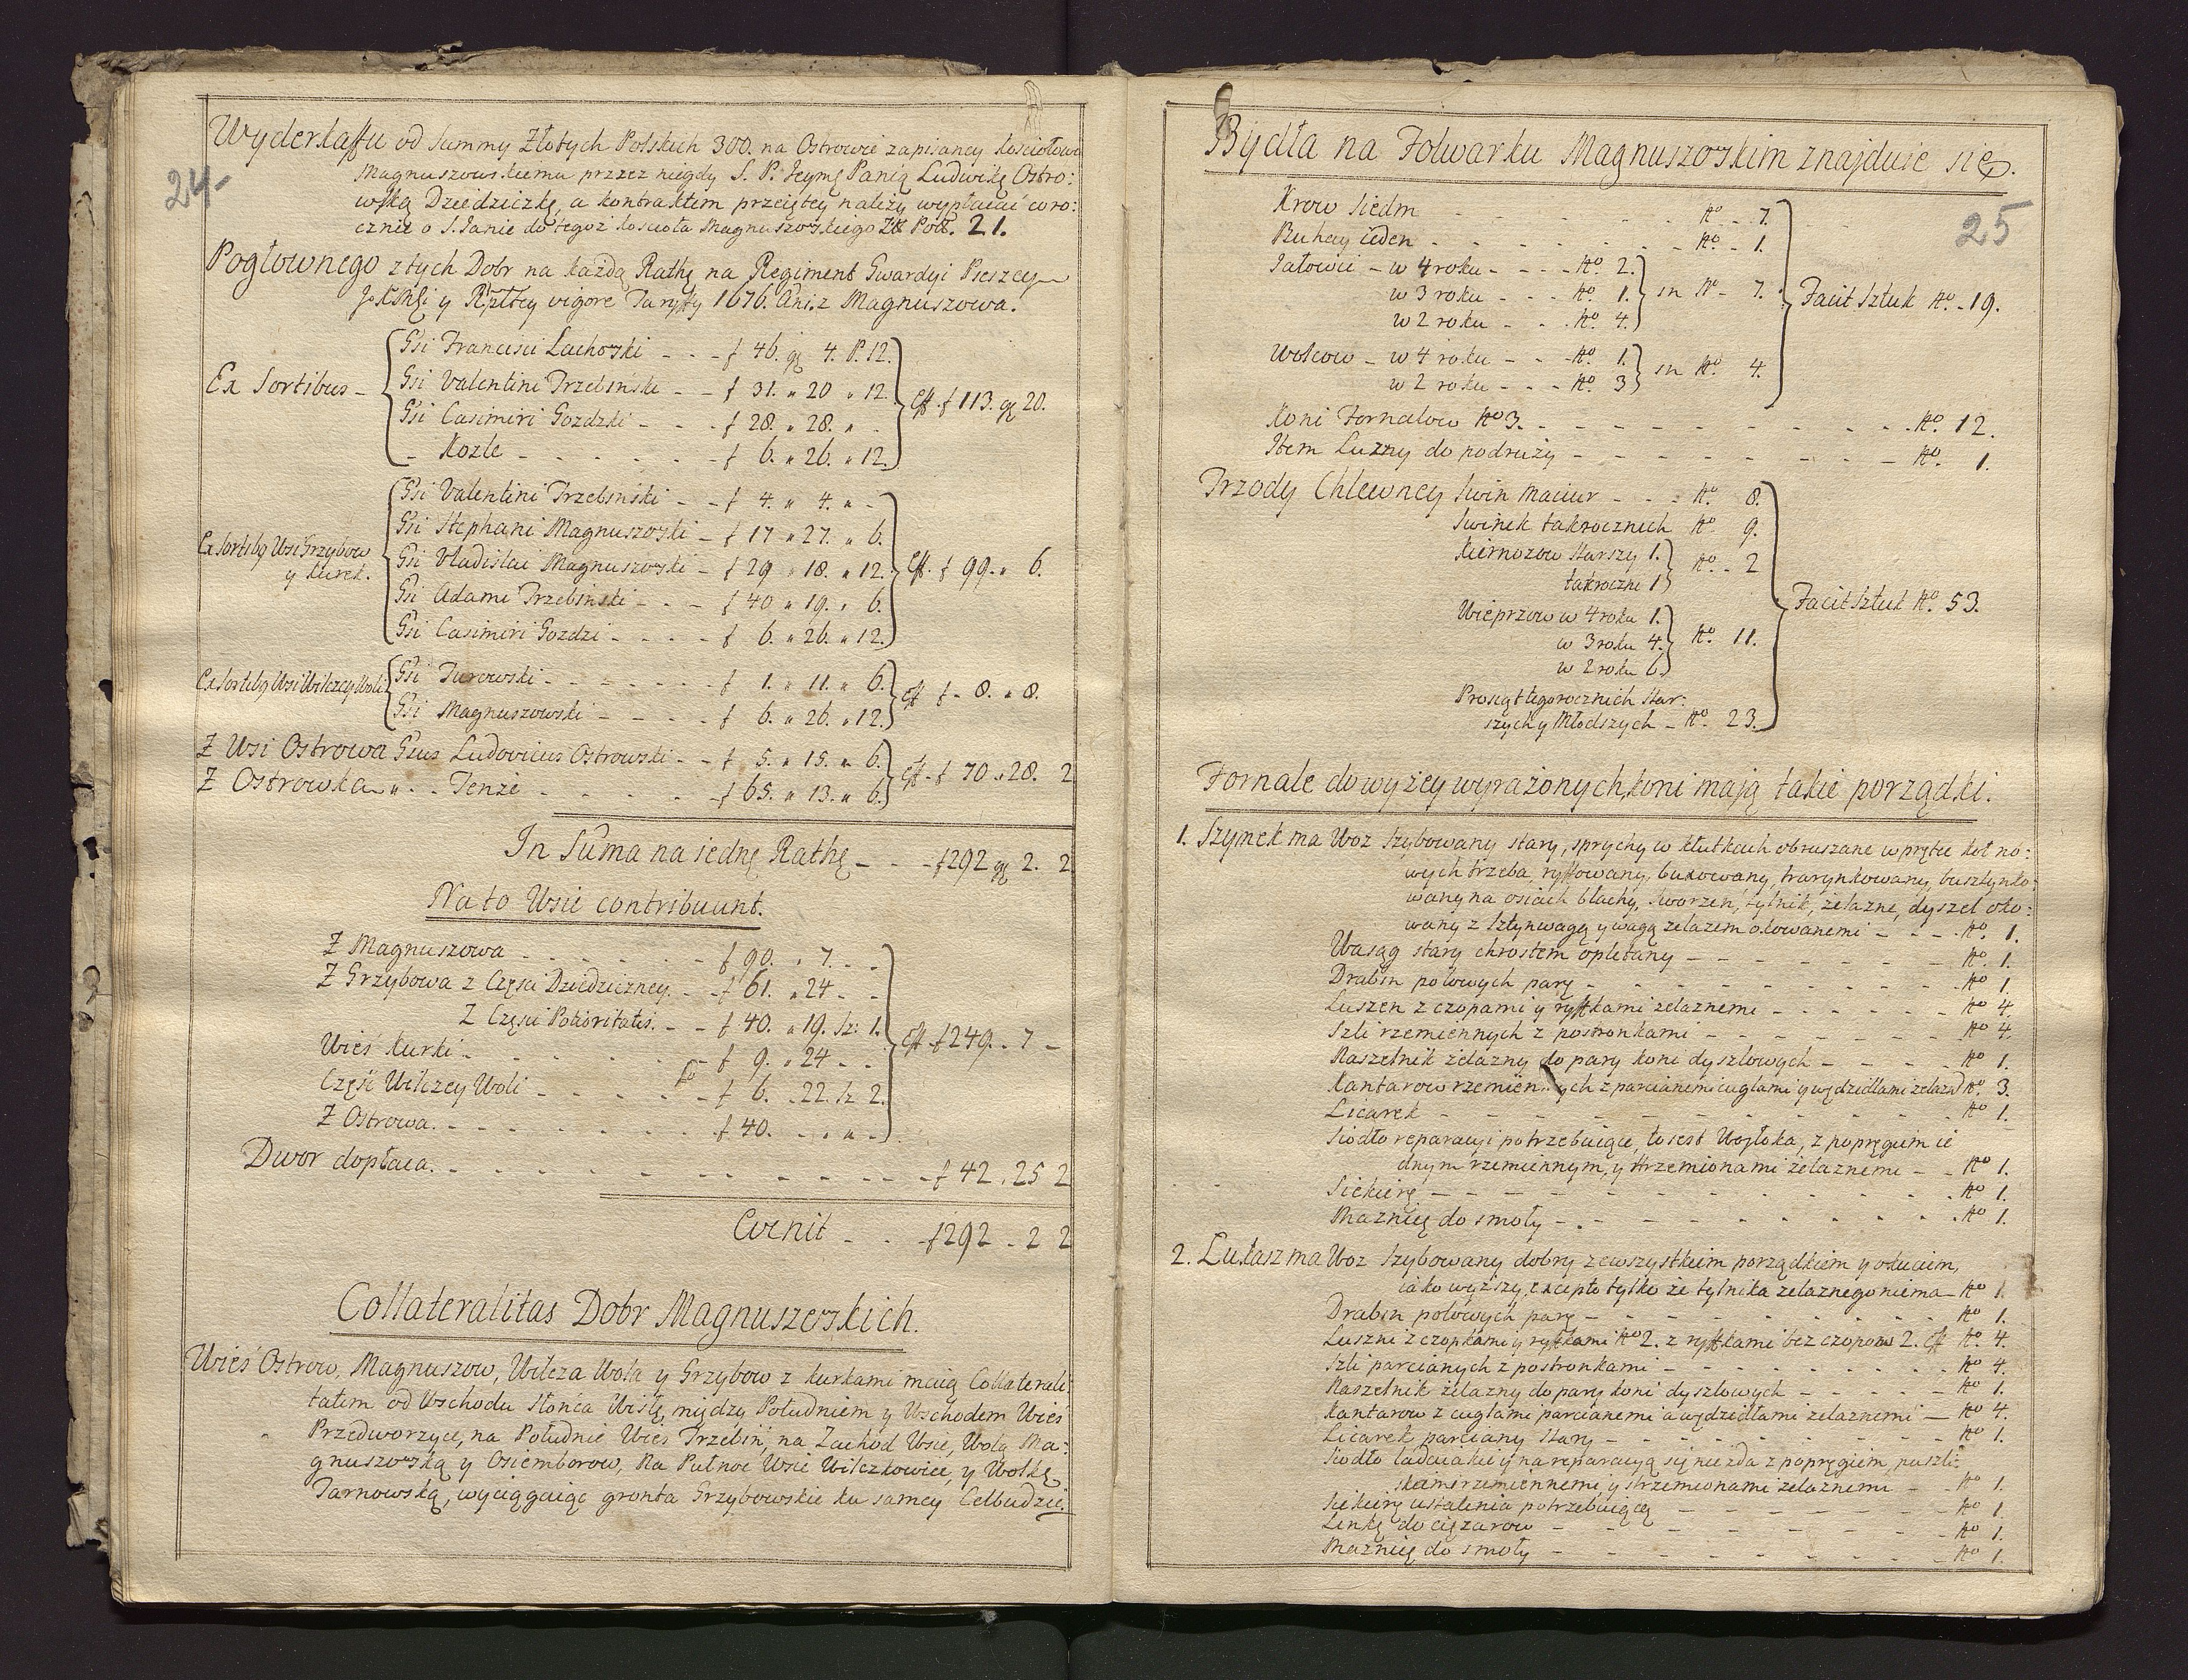 24
Wyderkaffu od Summy Złotych Polskich 300. na Ostrowie zapisaney kościołowi
Magnuszowskiemu przez niegdy S. P. Jeymę Panią Ludwikę Ostro:
wską Dziedziczkę, a kontraktem przeiętey należy wypłacać coro:
cznie o S. Janie do tegoż kościoła Magnuszowskiego Zł Pol. 21.
Pogłownego z tych Dobr na każdą Rathę na Regiment Gwardyi Pieszey
JoKMśi y Rzpltey vigore Taryffy 1676. Ani. z Magnuszowa.
Ex Sortibus -
Gsi Francisci Lachowski - - - f 46. gr 4. P. 12.
Gsi Valentini Trzebiński - - f 31. " 20 " 12.
Gsi Casimiri Gozdzki - - - f 28. " 28. " -
- Kozle - - - - - - f 6. " 26. " 12.
eff. f 113. gr 20.
Ex Sortibg Wsi Grzybow
y Kurek.
Gsi Valentini Trzebiński - - f 4. " 4. " -
Gsi Stephani Magnuszowski - f 17 " 27. " 6.
Gsi Vladislai Magnuszowski - f 29 " 18. " 12.
Gsi Adami Trzebiński - - - f 40 " 19. " 6.
Gsi Casimiri Gozdzi - - - - f 6. " 26. " 12.
eff. f 99. " 6.
Ex Sortibg Wsi Wilczey Woli
Gsi Turowski - - - - - - - f 1. " 11. " 6.
Gsi Magnuszowski - - - - f 6. " 26. " 12.
eff f - 8. " 8.
Z Wsi Ostrowa Gsus Ludovicus Ostrowski - - f 5. " 15. " 6.
Z Ostrowka " - - Tenże - - - - - f 65. " 13. " 6.
eff - f 70. " 28. 2
In Suma na iednę Rathę - - - f 292 gr 2. 2
Na to Wsie contribuunt.
Z Magnuszowa - - - - - - f 90. " 7. - -
Z Grzybowa z Części Dziedziczney. - - f 61. " 24 - -
Z Części Potioritatis. - - f 40. " 19. Sz: 1.
Wieś Kurki - - - - - - f 9. " 24 - -
Część Wilczey Woli - - - - - - f 6. " 22. Sz 2.
Z Ostrowa. - - - - - - - f 40. - " " -
eff - f 249. - 7 -
Dwor dopłaca. - - - - - - - - - - f 42. 25 2
Evenit - - - f 292 - 2 2
Collateralitas Dobr Magnuszewskich.
Wieś Ostrow, Magnuszow, Wilcza Wola y Grzybow z kurkami maią Collaterali:
tatem od Wschodu Słońca Wisłę, między Południem y Wschodem Wieś
Przedworzyce, na Południe Wieś Trzebin, na Zachod Wsie, Wola Ma:
gnuszowską y Osiemborow, Na Pułnoc Wsie Wilczkowice, y Wolkę
Tarnowską, wyciągaiąc gronta Grzybowskie ku samey Celbudzie.
25
Bydła na Folwarku Magnuszowskim znajduie się.
Krow Siedm - - - - - - - No - 7.
Buhay ieden - - - - - - - No - 1.
Jałowic - w 4 roku - - - No. 2.
w 3 roku - - - No. 1.
w 2 roku - - - No. 4.
in No - 7.
Wołcow - w 4 roku - - - No. 1.
w 2 roku - - - No. 3
in No. 4.
Facit Sztuk No. - 19.
Koni Fornalow No 3. - - - - - - - - - - No. 12.
Item Luzny do podruży - - - - - - - - - No. 1.
Trzody Chlewney Swin Maciur - - - No 8.
Swinek takrocznich No 9.
Kiernozow Starszy 1.
takroczni 1
No. - 2
Wieprzow w 4 roku 1.
w 3 roku 4.
w 2 roku 6.
No. 11.
Prosiąt tegorocznich Star:
szych y Młodszych - No. 23.
Facit Sztuk No. 53.
Fornale do wyżey wyrażonych koni mają takie porządki.
1. Szymek ma Woz Szybowany stary, sprychy w klutkach obruszane w pręthce koł no:
wych trzeba, ryffowany, buxowany, trarynkowany, busztynko:
wany na osiach blachy, Sworzen, tylnik, żelazne, dyszel oko:
wany z Sztynwagą y wagą żelazem okowanemi - - - - No. 1.
Wasąg stary chrostem opletany - - - - - - - No. 1.
Drabin polowych parę - - - - - - - - - No 1
Luszen z czopami y ryffkami żelaznemi - - - - - - No 4.
Szli rzemiennych z postronkami - - - - - - - No 4.
Naszelnik żelazny do pary koni dyszlowych - - - - - No 1.
Kantarow rzemiennych z parcianemi cuglami y wędzidłami żelazn. No. 3.
Licarek - - - - - - - - - - - No 1.
Siodło reparacyi potrzebuiące, to iest Woyłoka, z popręgiem ie
dnym rzemiennym, y strzemionami żelaznemi - - No 1.
Siekierę - - - - - - - - - - - No 1.
Maznicę do smoły - - - - - - - - - No 1.
2. Łukasz ma Woz Szybowany dobry z wszystkiem porządkiem y okuciem,
iako wyższy, excepto tylko że tylnika żelaznego niema - No 1.
Drabin polowych parę - - - - - - - - No 1.
Luszni z czopkami y ryffkami No 2. z ryffkami bez czopow 2. eff No. 4.
Szli parcianych z postronkami - - - - - - - No 4.
Naszelnik żelazny do pary koni dyszlowych - - - - - No 1.
Kantarow z cuglami parcianemi a wędzidłami żelaznemi - No 4.
Licarek parciany stary - - - - - - - - No 1.
Siodło ladaiakie y na reparacyą się niezda z popręgiem, puzli:
skami rzemiennemi, y strzemionami żelaznemi - - No 1.
Siekierę ustalenia potrzebuiącą - - - - - - - No 1
Linkę do ciężarow - - - - - - - - - No 1.
Maznicę do smoły - - - - - - - - - No 1.